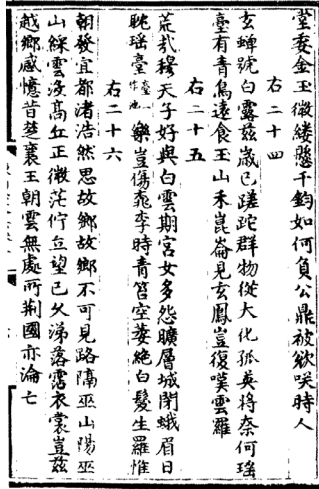 堂委金玉微縷懸千鈞如何負公鼎被敓咲時人
右二十四
玄蟬號白露茲歲已蹉跎群物從大化孤英將奈何瑤
臺有青鳥遠食玉山禾崑崙見玄鳳豈復嘆雲羅
右二十五
荒哉穆天子好與白雲期宮女多怨曠層城閉蛾眉日
耽瑤臺一作池樂豈傷桃李時青苔空萎絕白髮生羅帷
右二十六
朝發宜都渚浩然思故鄉故鄉不可見路隔巫山陽巫
山綵雲沒高丘正微茫佇立望已久涕落霑衣裳豈茲
越鄉感憶昔楚襄王朝雲無處所荊國亦淪亡